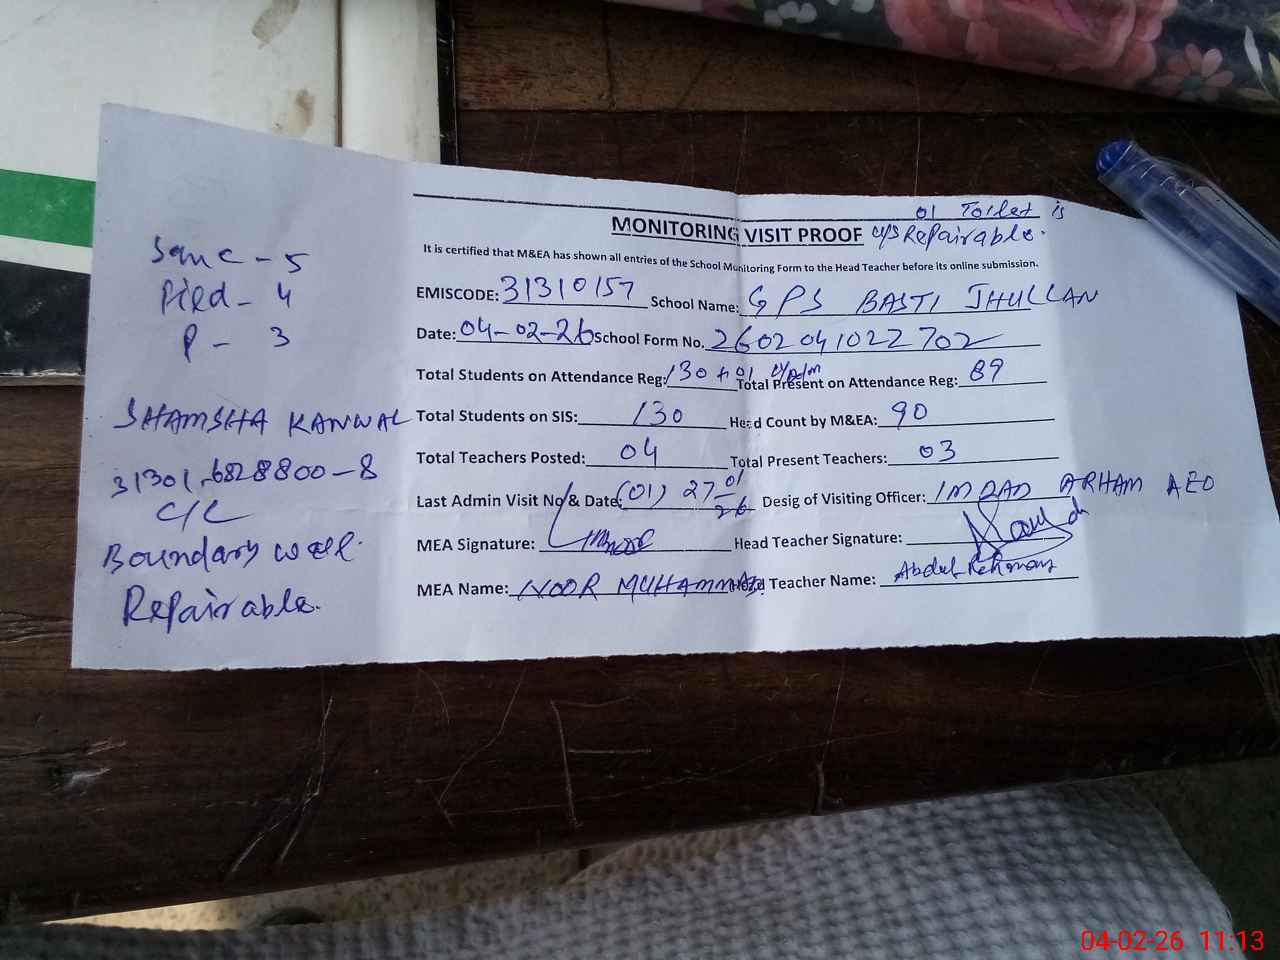 01 Toilet is
MONITORING VISIT PROOF Repairable.
It is certified that M&EA has shown all entries of the School Monitoring Form to the Head Teacher before its online submission.
EMISCODE: 31310157 School Name: GPS BASTI JHULLAN
Date: 04-02-26 School Form No. 2602041022702
Total Students on Attendance Reg: 130+01 Total Present on Attendance Reg: 89
Total Students on SIS: 130 Head Count by M&EA: 90
Total Teachers Posted: 04 Total Present Teachers: 03
Last Admin Visit No & Date: (01) 27-01-26 Desig of Visiting Officer: IMDAD ARHAM AEO
MEA Signature: Head Teacher Signature:
MEA Name: NOOR MUHAMMAD Head Teacher Name: Abdul Rehman
Sanc - 5
Filled - 4
P - 3
SHAMSHA KANWAL
31301-6828800-8
C/L
Boundary wall
Repairable.
04-02-26 11:13